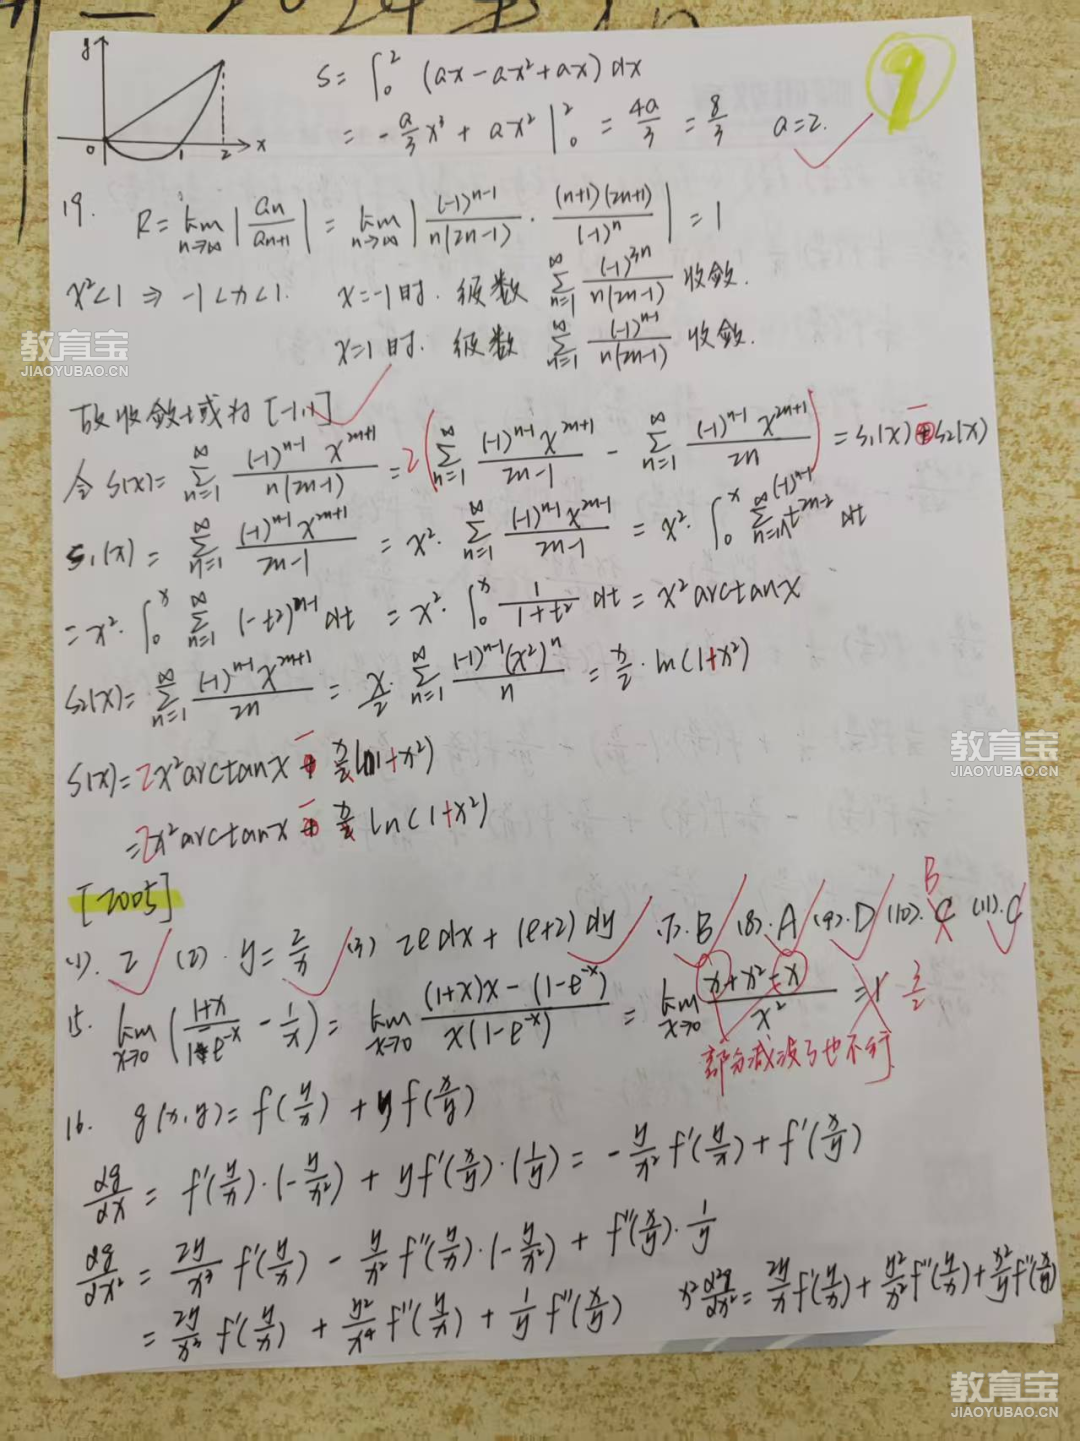 y
0 1 2 x
S = ∫₀² (ax - ax² + ax) dx
= -a/3 x³ + ax² |₀² = 4a/3 = 8/3 a=2.
9
19. R = lim_{n→∞} |an/an+1| = lim_{n→∞} |(-1)^{n-1}/n(2n-1) · (n+1)(2n+1)/(-1)^n| = 1
x²<1 ⇒ -1<x<1. x=-1时. 级数 ∑_{n=1}^∞ (-1)^{3n}/n(2n-1) 收敛.
x=1时. 级数 ∑_{n=1}^∞ (-1)^{n-1}/n(2n-1) 收敛.
教育宝
JIAOYUBAO.CN
故收敛域为[-1,1]
令S(x) = ∑_{n=1}^∞ (-1)^{n-1} x^{2n+1}/n(2n-1) = 2(∑_{n=1}^∞ (-1)^{n-1} x^{2n+1}/2n-1 - ∑_{n=1}^∞ (-1)^{n-1} x^{2n+1}/2n) = S₁(x) - S₂(x)
S₁(x) = ∑_{n=1}^∞ (-1)^{n-1} x^{2n+1}/2n-1 = x² · ∑_{n=1}^∞ (-1)^{n-1} x^{2n-1}/2n-1 = x² · ∫₀ˣ ∑_{n=1}^∞ (-1)^{n-1} t^{2n-2} dt
= x² · ∫₀ˣ ∑_{n=1}^∞ (-t²)^{n-1} dt = x² · ∫₀ˣ 1/1+t² dt = x² arctanx
S₂(x) = ∑_{n=1}^∞ (-1)^{n-1} x^{2n+1}/2n = x/2 · ∑_{n=1}^∞ (-1)^{n-1} (x²)^n/n = x/2 · ln(1+x²)
S(x) = 2x² arctanx - x ln(1+x²)
= 2x² arctanx - x ln(1+x²)
教育宝
JIAOYUBAO.CN
[2005]
(1). 2 (2). y = 2/x (3) 2edx + (e+2)dy (7). B (8). A (9). D (10). C B (11). C
15. lim_{x→0} (1+x/1-e^{-x} - 1/x) = lim_{x→0} (1+x)x - (1-e^{-x})/x(1-e^{-x}) = lim_{x→0} x+x²-x/x² = 1 3/2
部分减没了也不行
16. g(x,y) = f(y/x) + y f(x/y)
dg/dx = f'(y/x) · (-y/x²) + y f'(x/y) · (1/y) = -y/x² f'(y/x) + f'(x/y)
dg/dx² = 2y/x³ f'(y/x) - y/x² f''(y/x) · (-y/x²) + f''(x/y) · 1/y
= 2y/x³ f'(y/x) + y²/x⁴ f''(y/x) + 1/y f''(x/y) x² d²g/dx² = 2y/x f'(y/x) + y²/x² f''(y/x) + x²/y f''(x/y)
教育宝
JIAOYUBAO.CN